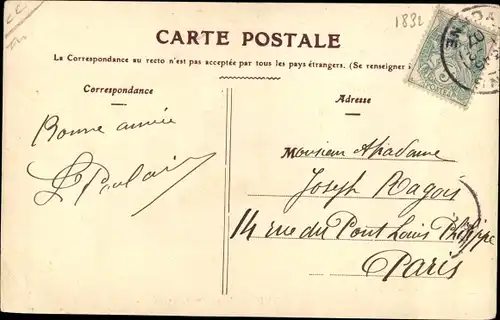 1832
CARTE POSTALE
La Correspondance au recto n'est pas acceptée par tous les pays étrangers. (Se renseigner
Correspondance
Adresse
Bonne année
Monsieur Madame
Joseph Ragois
14 rue du Pont Louis Philippe
Paris